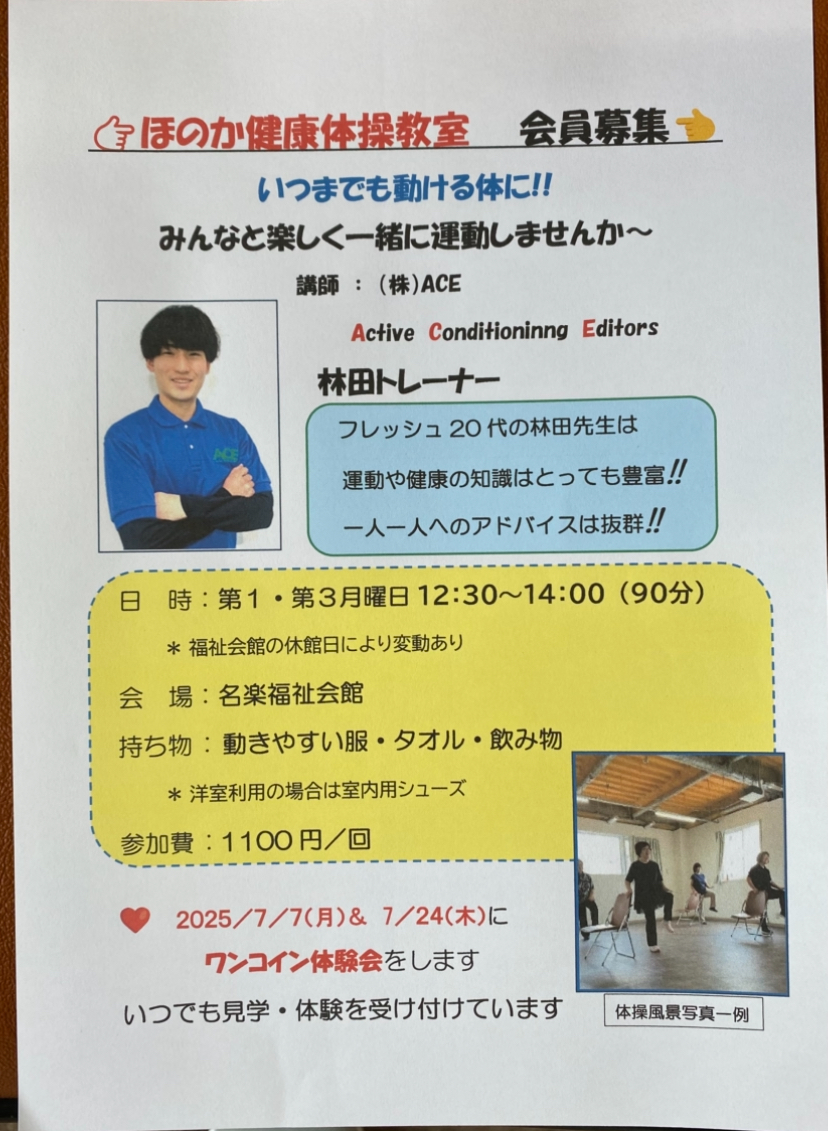 ほのか健康体操教室 会員募集
いつまでも動ける体に!!
みんなと楽しく一緒に運動しませんか～
講師 ： (株)ACE
Active Conditioninng Editors
林田トレーナー
ACE
フレッシュ20代の林田先生は
運動や健康の知識はとっても豊富!!
一人一人へのアドバイスは抜群!!
日 時：第1・第3月曜日12:30～14:00（90分）
＊ 福祉会館の休館日により変動あり
会 場：名楽福祉会館
持ち物：動きやすい服・タオル・飲み物
＊ 洋室利用の場合は室内用シューズ
参加費：1100円／回
2025/7/7(月)& 7/24(木)に
ワンコイン体験会をします
いつでも見学・体験を受け付けています
体操風景写真一例